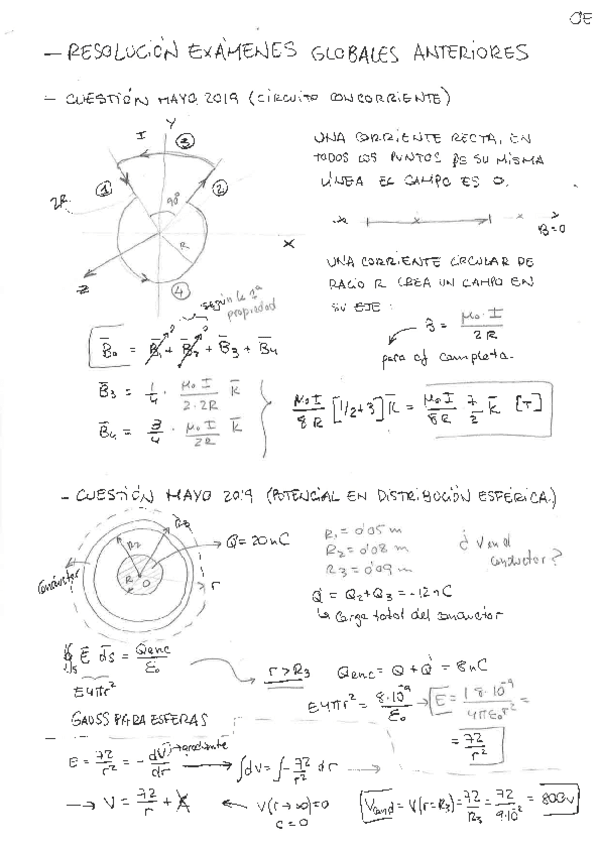 CE
- RESOLUCIÓN EXÁMENES GLOBALES ANTERIORES
- CUESTIÓN MAYO 2019 (CIRCUITO CON CORRIENTE)
Y
I
③
①
②
2R
90°
R
X
Z
④
UNA CORRIENTE RECTA, EN
TODOS LOS PUNTOS DE SU MISMA
LÍNEA EL CAMPO ES 0.
B=0
UNA CORRIENTE CIRCULAR DE
RADIO R CREA UN CAMPO EN
SU EJE:
B = μ₀·I / 2R
para cf completa.
según la 1ª
propiedad
B₀ = B₁ + B₂ + B₃ + B₄
B₃ = 1/4 · μ₀I / 2·2R K
B₄ = 3/4 · μ₀I / 2R K
μ₀I / 8R [1/2+3] K = μ₀I / 8R 7/2 K [T]
- CUESTIÓN MAYO 2019 (POTENCIAL EN DISTRIBUCIÓN ESFÉRICA)
R₃
R₂
Q=20nC
R
O
r
Conductor
R₁=0'05 m
R₂=0'08 m
R₃=0'09 m
¿V en el
conductor?
Q' = Q₂+Q₃ = -12nC
↳ Carga total del conductor
∮s E ds = Qenc / ε₀
E4πr²
r>R₃
Qenc = Q+Q' = 8nC
E4πr² = 8·10⁻⁹ / ε₀ → E = 1 8·10⁻⁹ / 4πε₀r² =
= 72 / r²
GAUSS PARA ESFERAS
E = 72/r² = -dV/dr → gradiente
∫dV = ∫-72/r² dr →
→ V = 72/r + C
← V(r→∞)=0
C=0
Vcond = V(r=R₃) = 72/R₃ = 72/9·10⁻² = 800V